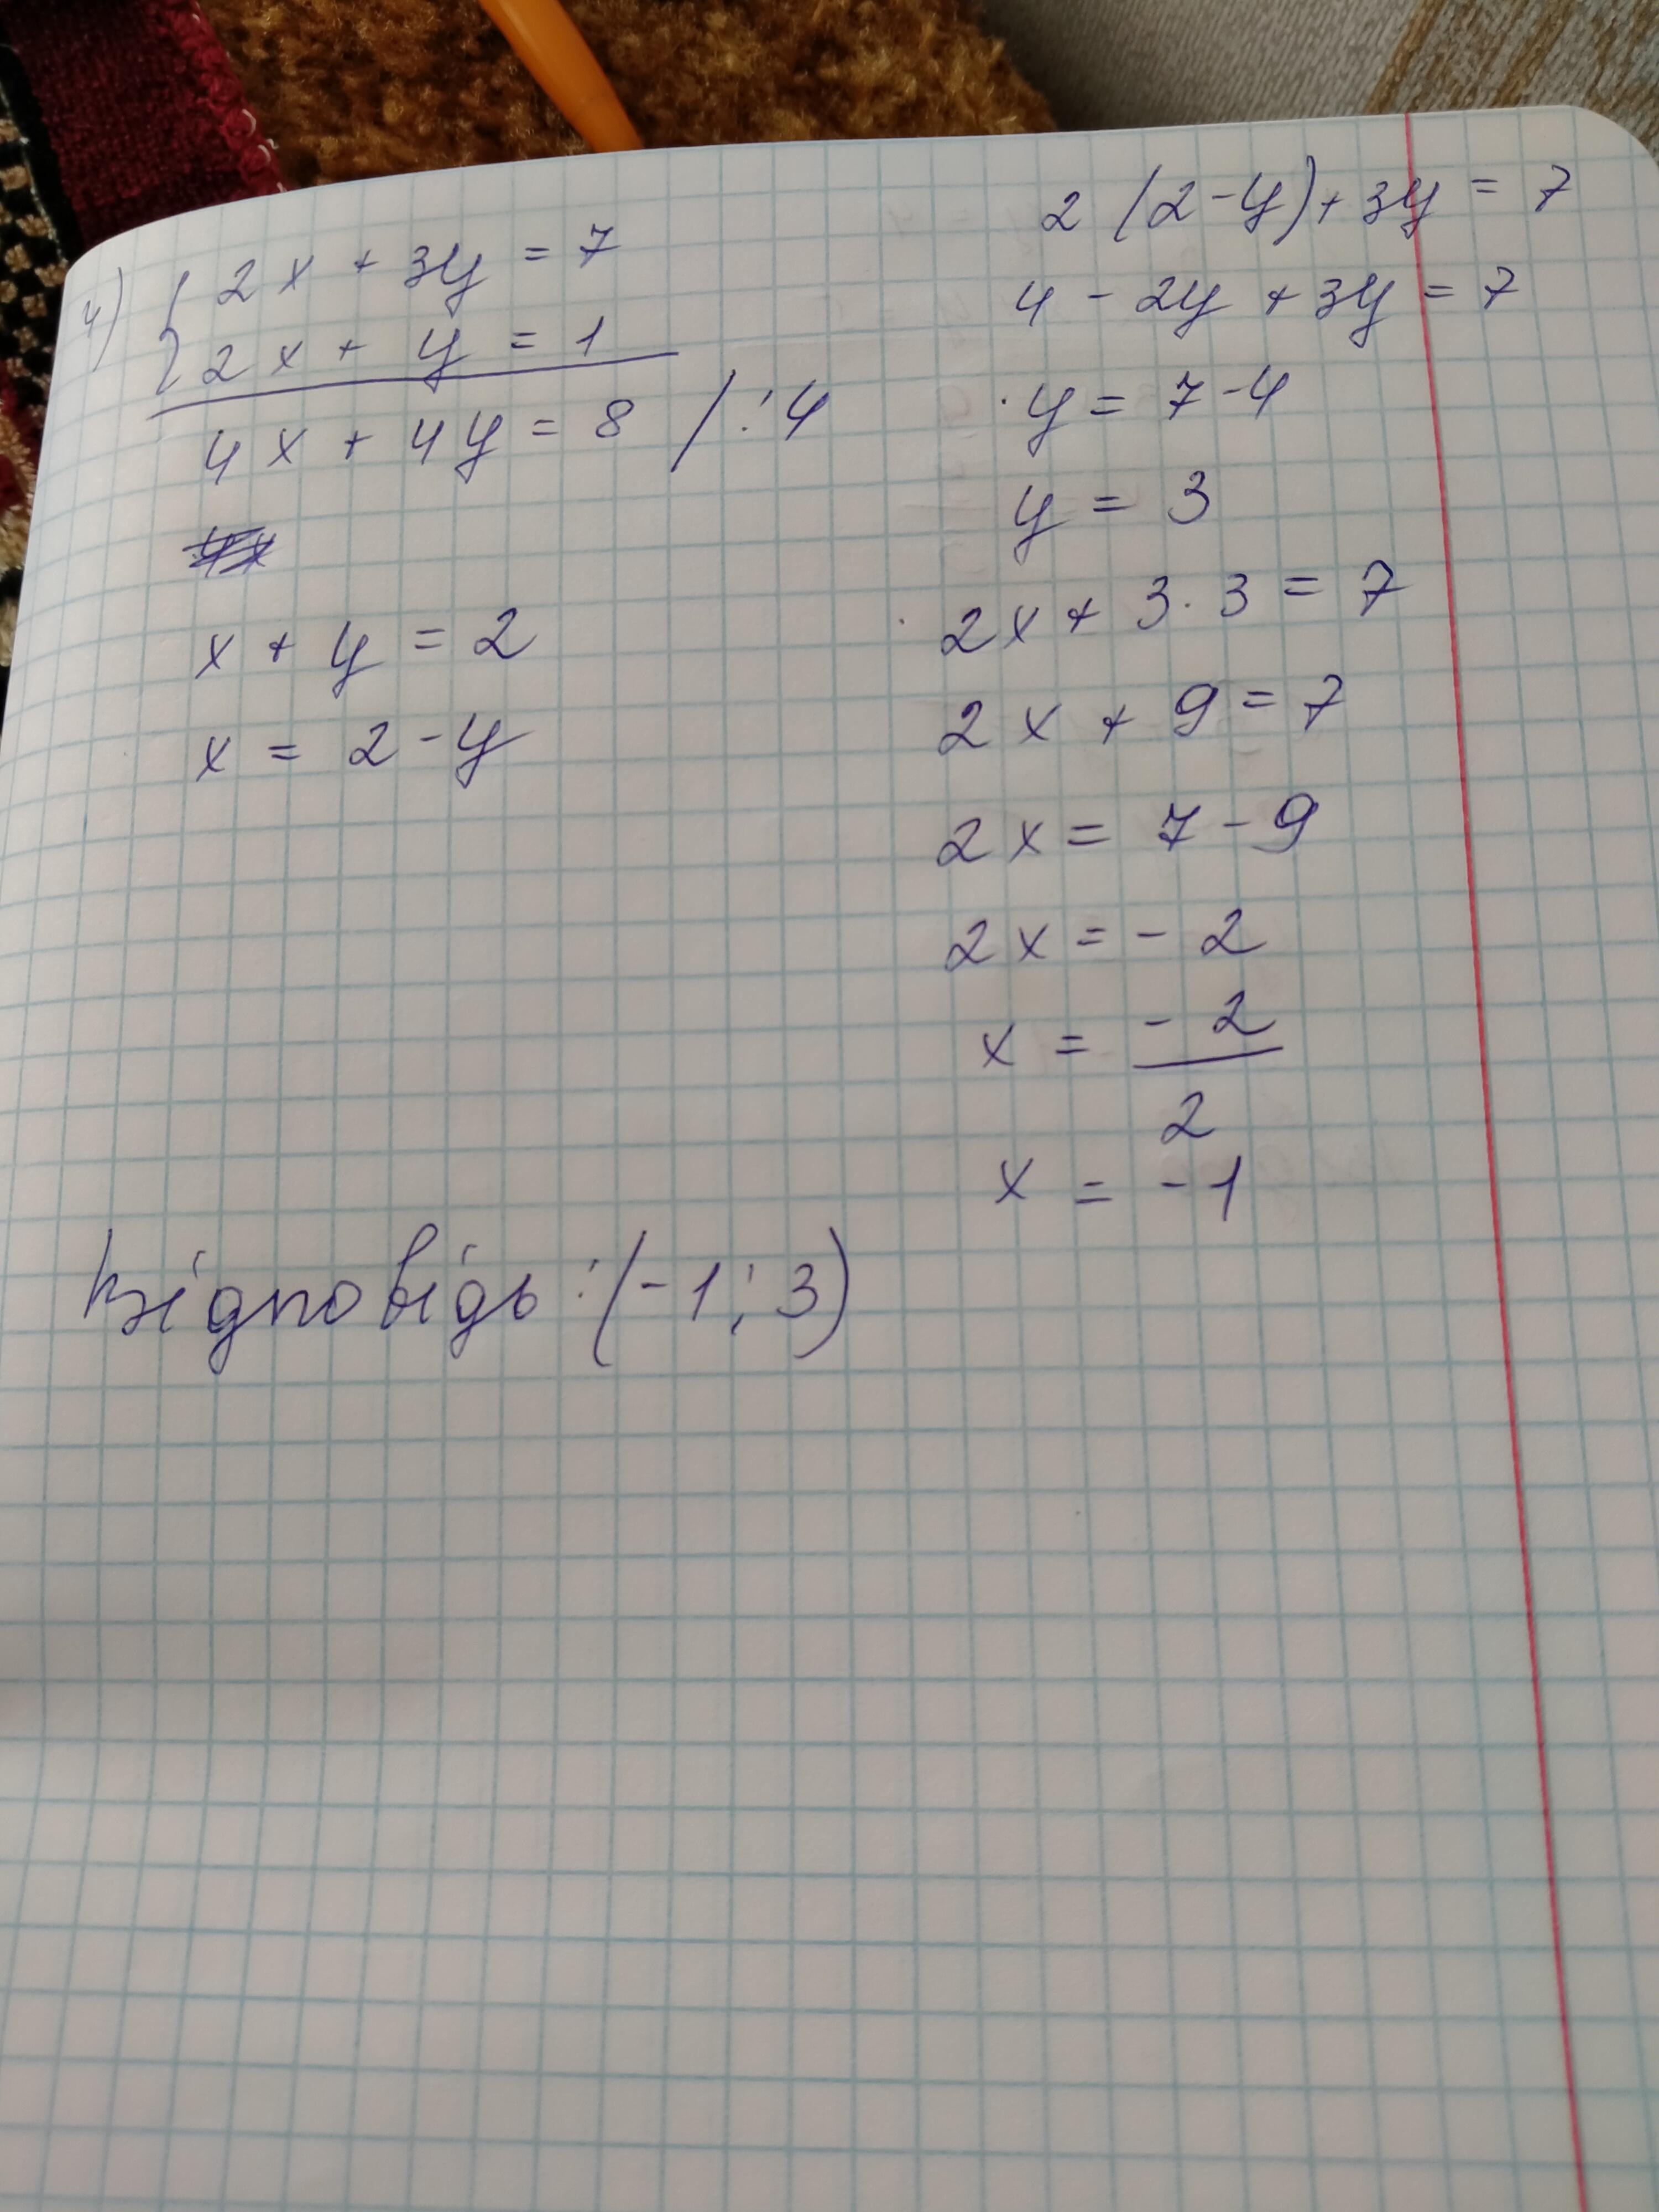 4) { 2x + 3y = 7
2x + y = 1
4x + 4y = 8 / :4
x + y = 2
x = 2 - y
2 (2 - y) + 3y = 7
4 - 2y + 3y = 7
y = 7 - 4
y = 3
2x + 3 · 3 = 7
2x + 9 = 7
2x = 7 - 9
2x = - 2
x = - 2
2
x = - 1
Відповідь : (- 1 ; 3)